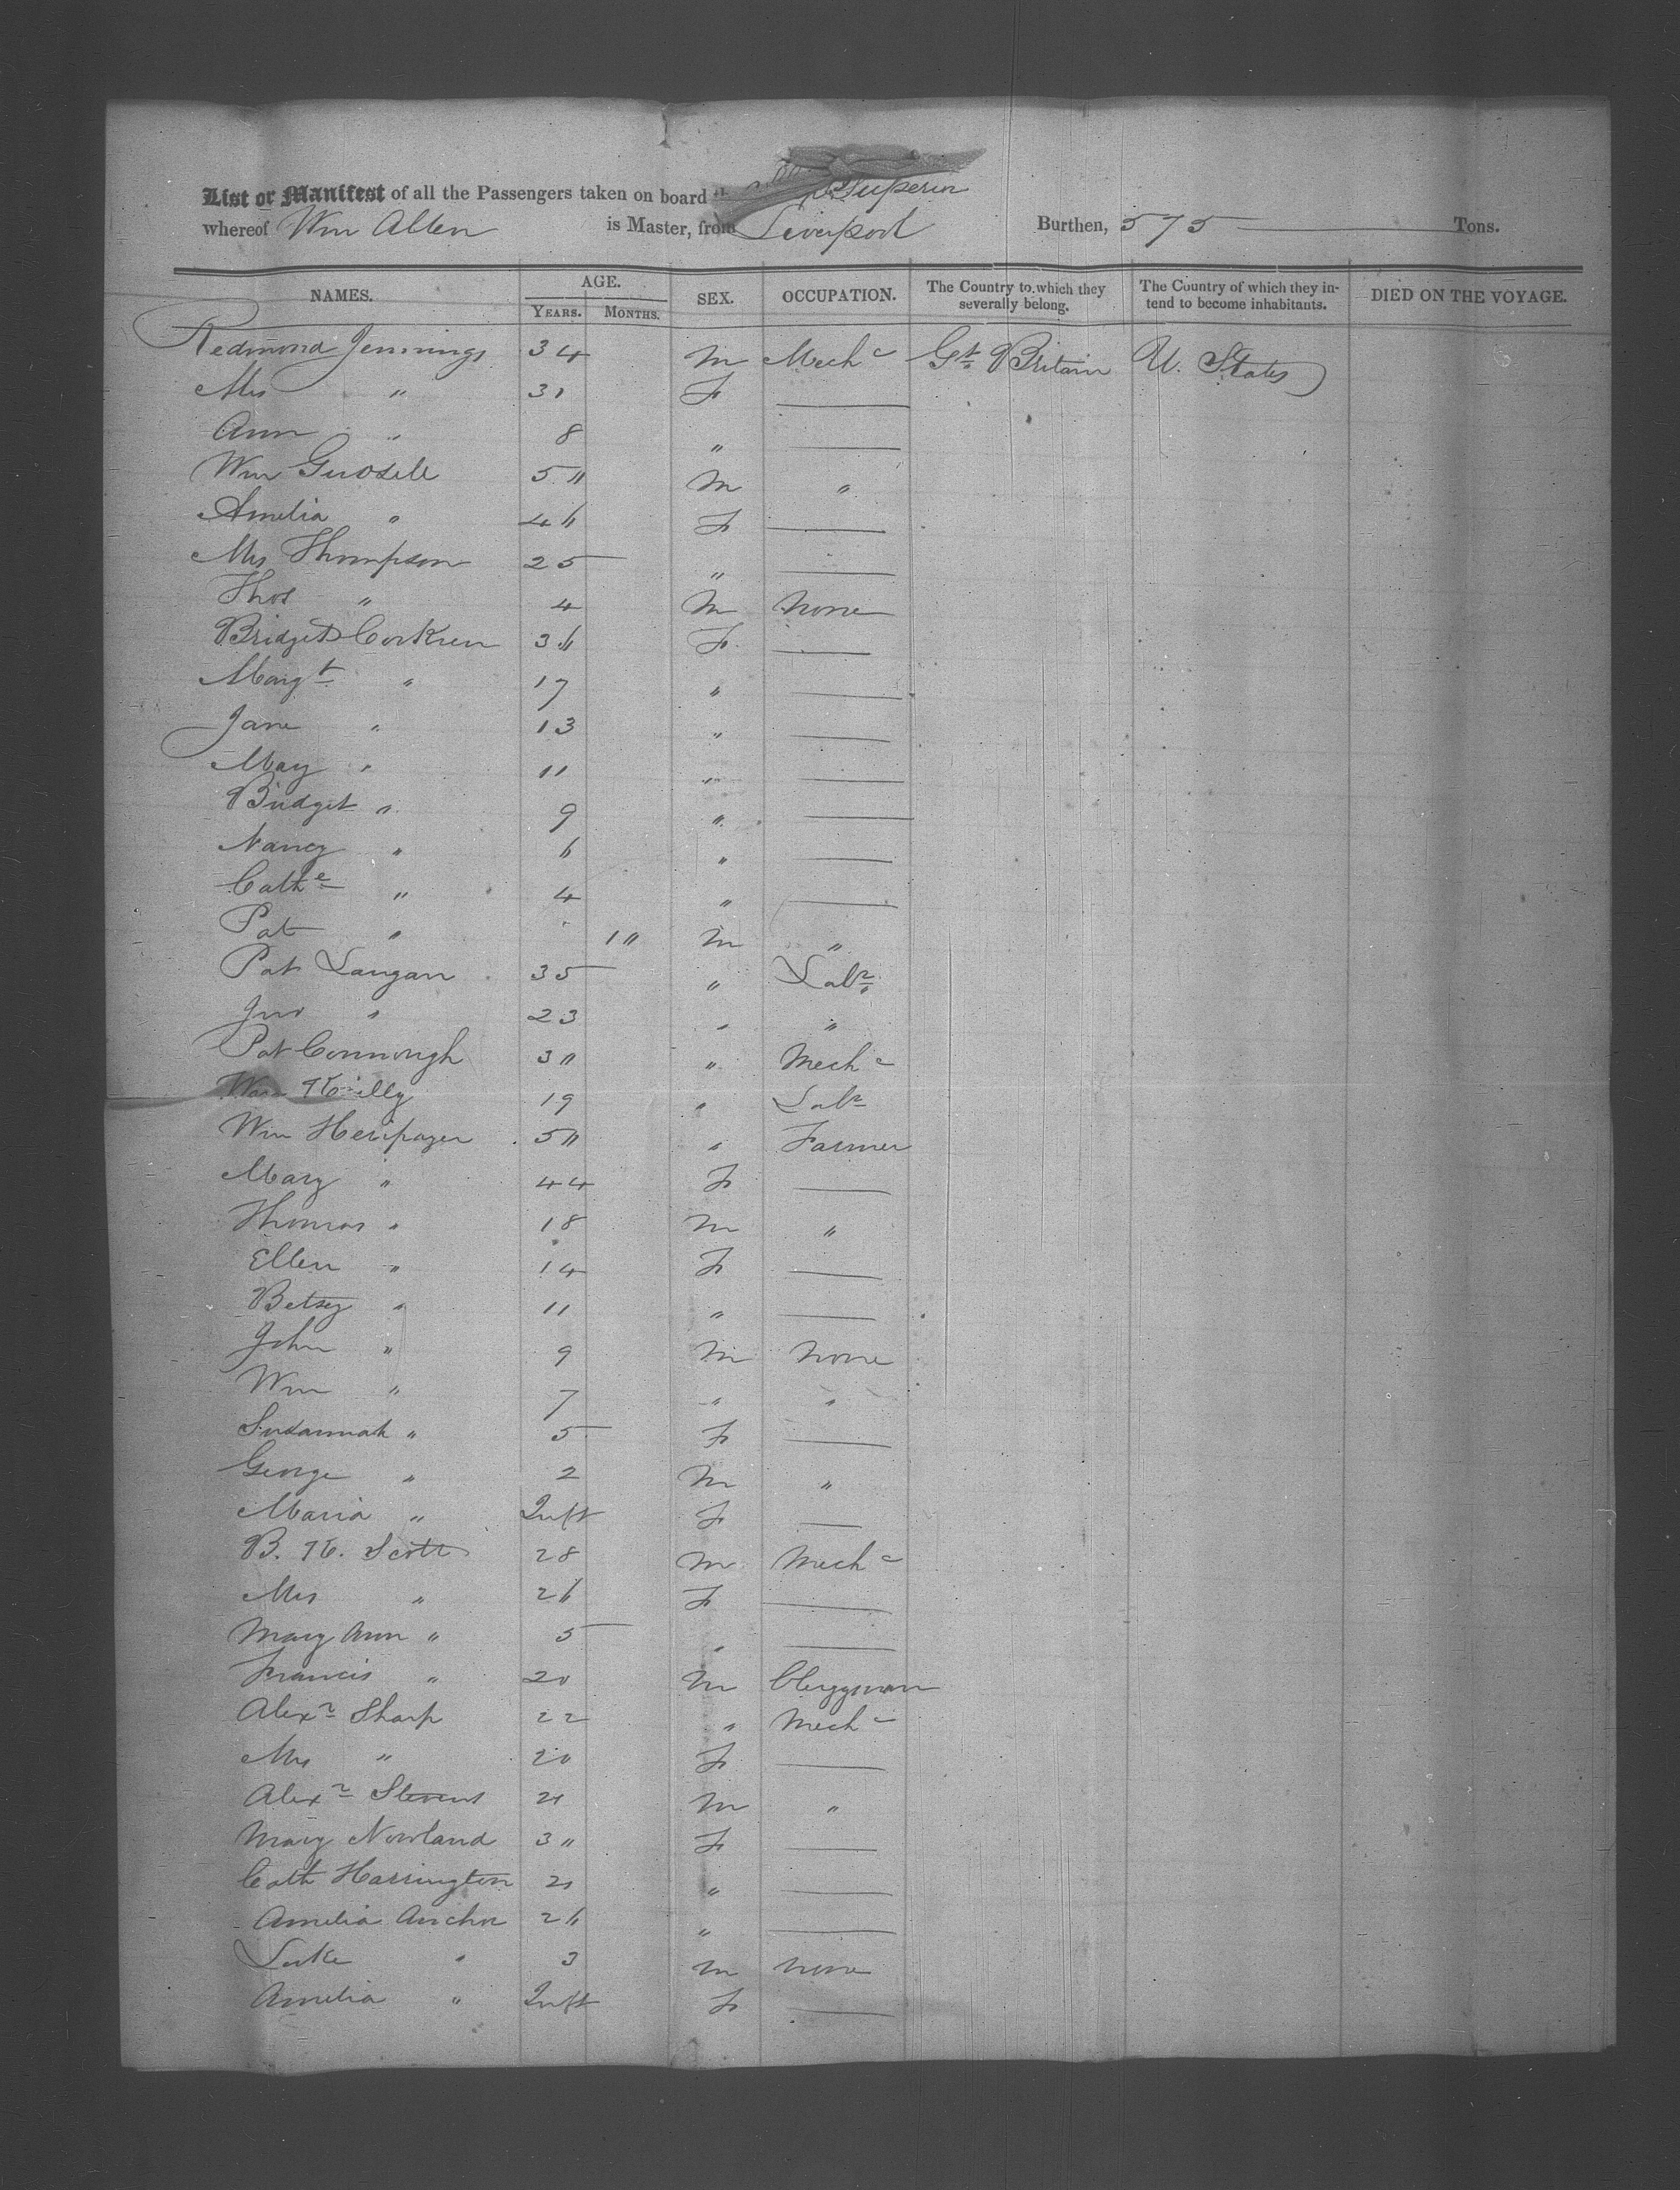 List or Manifest of all the Passengers taken on board Superior
whereof Wm Allen is Master, from Liverpool Burthen, 575 Tons.
NAMES. AGE. YEARS. MONTHS. SEX. OCCUPATION. The Country to which they severally belong. The Country of which they intend to become inhabitants. DIED ON THE VOYAGE.
Redmond Jennings 34 M Mechc Gt Britain U. States
Mrs " 31 F —
Ann " 8 " —
Wm 5" M "
Amelia " 46 F —
Mrs Thompson 25 " —
Thos " 4 M none
Bridget Corkren 36 F —
Margt " 17 " —
Jane " 13 " —
Mary " 11 " —
Bridget " 9 " —
Nancy " 6 " —
Cathe " 4 " —
Pat " 1" M "
Pat Langan 35 " Labr
Jno " 23 " "
Pat Connough 3" " Mechc
Wm Reilly 19 " Labr
Wm 5" " Farmer
Mary " 44 F —
Thomas " 18 M "
Ellen " 14 F —
Betsy " 11 " —
John " 9 M none
Wm " 7 " "
Susannah " 5 F —
George " 2 M "
Maria " Inft F —
B. R. Scott 28 M Mechc
Mrs " 26 F —
Mary Ann " 5 " —
Francis " 20 M Clergyman
Alexr Sharp 22 " Mechc
Mrs " 20 F —
Alexr Stevens 21 M "
Mary Nowland 3" F —
Cath Harrington 21 " —
Amelia Anchor 26 " —
Luke " 3 M none
Amelia " Inft F —